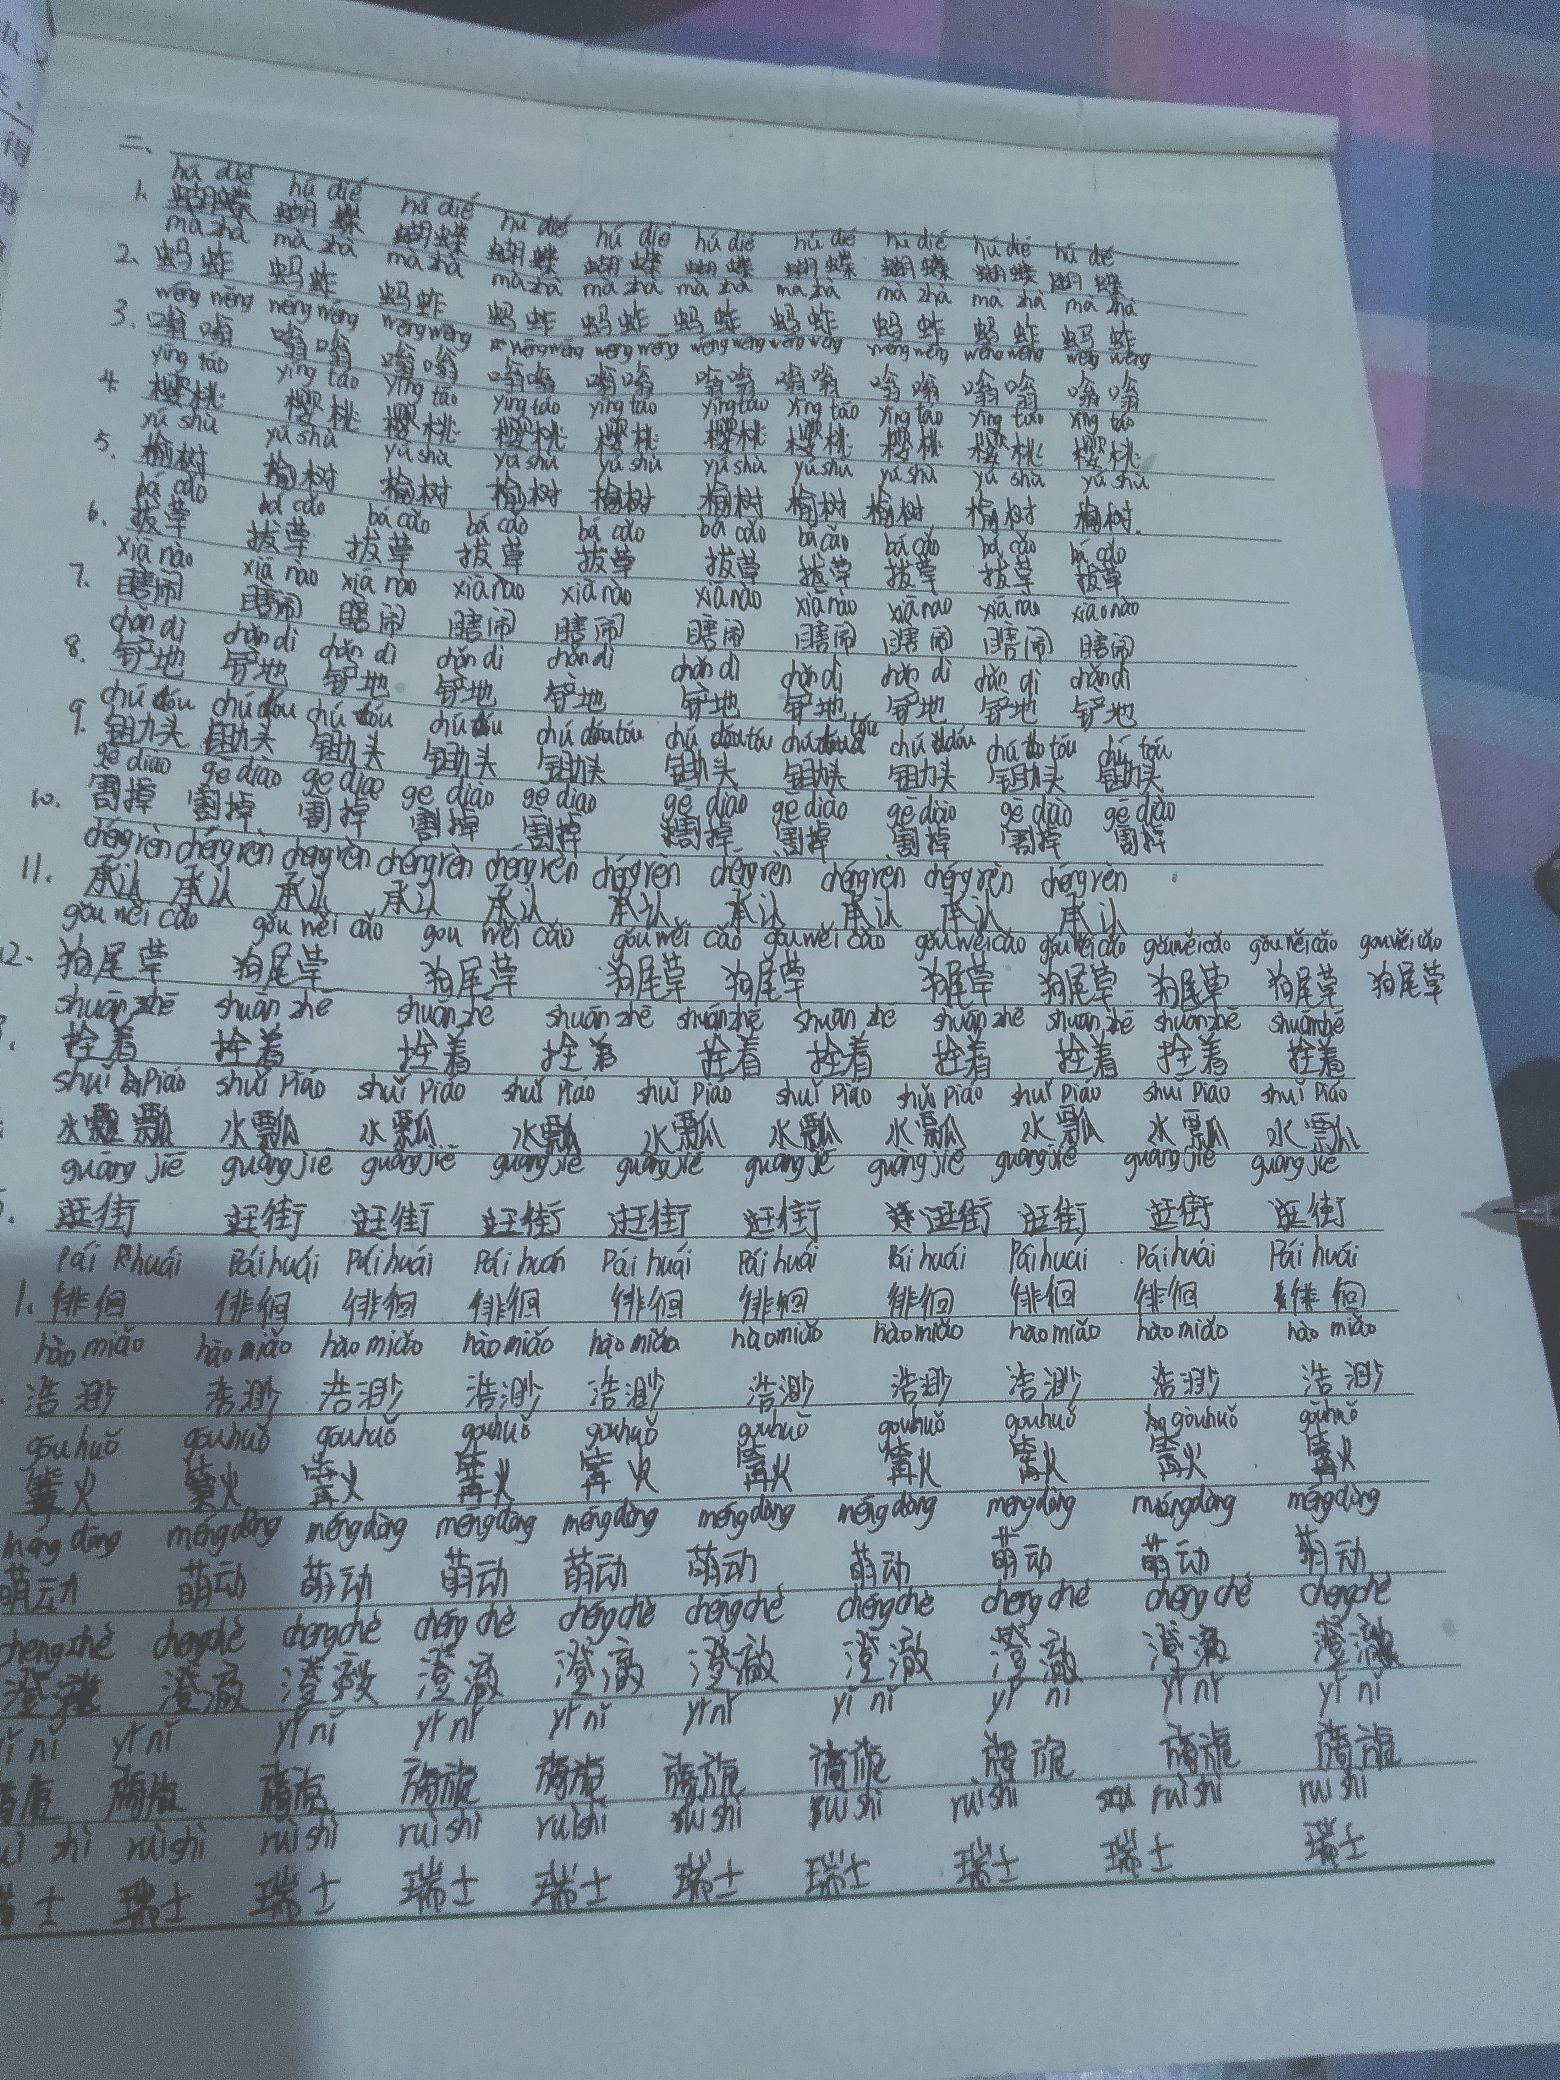 二、
hú dié hú dié hú dié hú dié hú dié hú dié hú dié hú dié hú dié hú dié
1. 蝴蝶 蝴蝶 蝴蝶 蝴蝶 蝴蝶 蝴蝶 蝴蝶 蝴蝶 蝴蝶 蝴蝶
mà zhà mà zhà mà zhà mà zhà mà zhà mà zhà mà zhà mà zhà mà zhà mà zhà
2. 蚂蚱 蚂蚱 蚂蚱 蚂蚱 蚂蚱 蚂蚱 蚂蚱 蚂蚱 蚂蚱 蚂蚱
wēng wēng wēng wēng wēng wēng wēng wēng wēng wēng wēng wēng wēng wēng wēng wēng wēng wēng wēng wēng
3. 嗡嗡 嗡嗡 嗡嗡 嗡嗡 嗡嗡 嗡嗡 嗡嗡 嗡嗡 嗡嗡 嗡嗡
yīng táo yīng táo yīng táo yīng táo yīng táo yīng táo yīng táo yīng táo yīng táo yīng táo
4. 樱桃 樱桃 樱桃 樱桃 樱桃 樱桃 樱桃 樱桃 樱桃 樱桃
yú shù yú shù yú shù yú shù yú shù yú shù yú shù yú shù yú shù yú shù
5. 榆树 榆树 榆树 榆树 榆树 榆树 榆树 榆树 榆树 榆树
bá cǎo bá cǎo bá cǎo bá cǎo bá cǎo bá cǎo bá cǎo bá cǎo bá cǎo bá cǎo
6. 拔草 拔草 拔草 拔草 拔草 拔草 拔草 拔草 拔草 拔草
xiā nào xiā nào xiā nào xiā nào xiā nào xiā nào xiā nào xiā nào xiā nào xiāo nào
7. 瞎闹 瞎闹 瞎闹 瞎闹 瞎闹 瞎闹 瞎闹 瞎闹 瞎闹 瞎闹
chǎn dì chǎn dì chǎn dì chǎn dì chǎn dì chǎn dì chǎn dì chǎn dì chǎn dì chǎn dì
8. 铲地 铲地 铲地 铲地 铲地 铲地 铲地 铲地 铲地 铲地
chú tóu chú tóu chú tóu chú tóu chú tóu chú tóu chú tóu chú dóu chú tóu chú tóu
9. 锄头 锄头 锄头 锄头 锄头 锄头 锄头 锄头 锄头 锄头
gē diào gē diào gē diào gē diào gē diào gē diào gē diào gē diào gē diào gē diào
10. 割掉 割掉 割掉 割掉 割掉 割掉 割掉 割掉 割掉 割掉
chéng rèn chéng rèn chéng rèn chéng rèn chéng rèn chéng rèn chéng rèn chéng rèn chéng rèn chéng rèn
11. 承认 承认 承认 承认 承认 承认 承认 承认 承认 承认
gǒu wěi cǎo gǒu wěi cǎo gǒu wěi cǎo gǒu wěi cǎo gǒu wěi cǎo gǒu wěi cǎo gǒu wěi cǎo gǒu wěi cǎo gǒu wěi cǎo gǒu wěi cǎo
12. 狗尾草 狗尾草 狗尾草 狗尾草 狗尾草 狗尾草 狗尾草 狗尾草 狗尾草 狗尾草
shuān zhē shuān zhē shuān zhē shuān zhē shuān zhē shuān zhē shuān zhē shuān zhē shuān zhē shuān zhē
拴着 拴着 拴着 拴着 拴着 拴着 拴着 拴着 拴着 拴着
shuǐ piáo shuǐ piáo shuǐ piáo shuǐ piáo shuǐ piáo shuǐ piáo shuǐ piáo shuǐ piáo shuǐ piáo shuǐ piáo
水瓢 水瓢 水瓢 水瓢 水瓢 水瓢 水瓢 水瓢 水瓢 水瓢
guàng jiē guàng jiē guàng jiē guàng jiē guàng jiē guàng jiē guàng jiē guàng jiē guàng jiē guàng jiē
逛街 逛街 逛街 逛街 逛街 逛街 逛街 逛街 逛街 逛街
pái huái pái huái pái huái pái huái pái huái pái huái pái huái pái huái pái huái pái huái
1. 徘徊 徘徊 徘徊 徘徊 徘徊 徘徊 徘徊 徘徊 徘徊 徘徊
hào miǎo hào miǎo hào miǎo hào miǎo hào miǎo hào miǎo hào miǎo hào miǎo hào miǎo hào miǎo
浩渺 浩渺 浩渺 浩渺 浩渺 浩渺 浩渺 浩渺 浩渺 浩渺
gōu huǒ gōu huǒ gōu huǒ gōu huǒ gōu huǒ gōu huǒ gōu huǒ gōu huǒ gōu huǒ gōu huǒ
篝火 篝火 篝火 篝火 篝火 篝火 篝火 篝火 篝火 篝火
méng dòng méng dòng méng dòng méng dòng méng dòng méng dòng méng dòng méng dòng méng dòng méng dòng
萌动 萌动 萌动 萌动 萌动 萌动 萌动 萌动 萌动 萌动
chéng chè chéng chè chéng chè chéng chè chéng chè chéng chè chéng chè chéng chè chéng chè
澄澈 澄澈 澄澈 澄澈 澄澈 澄澈 澄澈 澄澈 澄澈 澄澈
yǐ nǐ yǐ nǐ yǐ nǐ yǐ nǐ yǐ nǐ yǐ nǐ yǐ nǐ yǐ nǐ yǐ nǐ
旖旎 旖旎 旖旎 旖旎 旖旎 旖旎 旖旎 旖旎 旖旎
shì ruì shì ruì shì ruì shì ruì shì ruì shì ruì shì ruì shì ruì shì ruì shì
士 瑞士 瑞士 瑞士 瑞士 瑞士 瑞士 瑞士 瑞士 瑞士